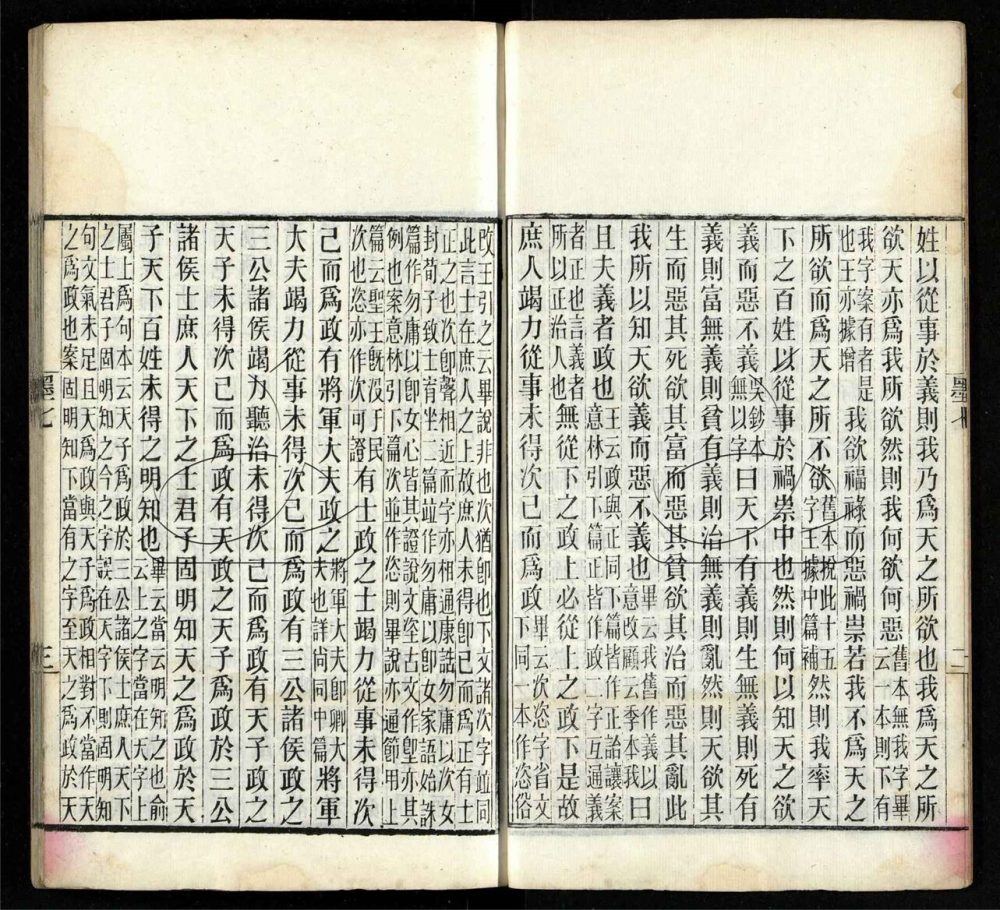 姓以從事於義則我乃爲天之所欲也我爲天之所
欲天亦爲我所欲然則我何欲何惡舊本無我字畢云一本則下有
我字案有者是也王亦據增我欲福祿而惡禍祟若我不爲天之
所欲而爲天之所不欲舊本挩此十五字王據中篇補然則我率天
下之百姓以從事於禍祟中也然則何以知天之欲
義而惡不義吳鈔本無以字曰天下有義則生無義則死有
義則富無義則貧有義則治無義則亂然則天欲其
生而惡其死欲其富而惡其貧欲其治而惡其亂此
我所以知天欲義而惡不義也畢云我舊作義以意改顧云季本我曰
且夫義者政也王云政與正同下篇正皆作政二字互通義意林引下篇正作詒讓案
者正也言義者所以正治人也無從下之政上必從上之政下是故
庶人竭力從事未得次己而爲政畢云次恣字省文下同一本作恣俗
改王引之云畢說非也次猶即也下文諸次字並同
此言士在庶人之上故庶人未得即己而爲正有士
正之也次即聲相近而字亦相通康誥勿庸以次女
封荀子致士宥坐二篇竝作勿庸以即女家語始誅
篇作勿庸以即女心皆其證說文垐古文作堲亦其
例也案意林引下篇次並作恣則畢說亦通節用上
篇云聖王旣沒于民次也恣亦作次可證有士政之士竭力從事未得次
己而爲政有將軍大夫政之將軍大夫即卿大夫也詳尚同中篇將軍
大夫竭力從事未得次己而爲政有三公諸侯政之
三公諸侯竭力聽治未得次己而爲政有天子政之
天子未得次己而爲政有天政之天子爲政於三公
諸侯士庶人天下之士君子固明知天之爲政於天
子天下百姓未得之明知也畢云當云明知之也俞云上之字當在天字上
屬上爲句本云天子爲政於三公諸侯士庶人天下
之士君子固明知之今之字誤在天字下則固明知
句文氣未足且天爲政與天子爲政相對不當作天
之爲政也案固明知下當有之字至天之爲政於天
墨七
二
墨七
三